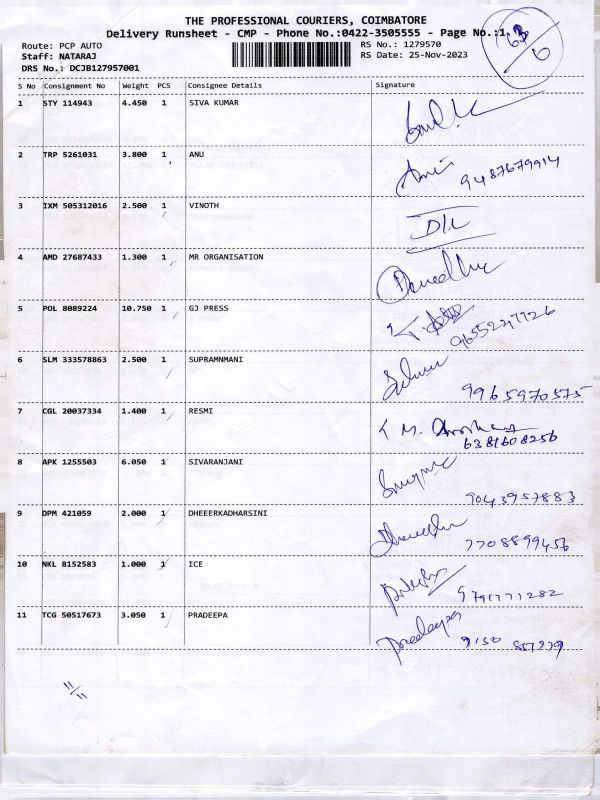 THE PROFESSIONAL COURIERS, COIMBATORE
Delivery Runsheet - CMP - Phone No.:0422-3505555 - Page No.:1
Route: PCP AUTO
RS No.: 1279570
Staff: NATARAJ
RS Date: 25-Nov-2023
DRS No.: DCJB127957001
S No Consignment No Weight PCS Consignee Details Signature
1 STY 114943 4.450 1 SIVA KUMAR
2 TRP 5261031 3.800 1 ANU
9487679914
3 IXM 505312016 2.500 1 VINOTH
4 AMD 27687433 1.300 1 MR ORGANISATION
5 POL 8089224 10.750 1 GJ PRESS
9655227726
6 SLM 333578863 2.500 1 SUPRAMNMANI
9965970575
7 CGL 20037334 1.400 1 RESMI
6381608256
8 APK 1255503 6.050 1 SIVARANJANI
9043957883
9 DPM 421059 2.000 1 DHEEERKADHARSINI
7708899456
10 NKL 8152583 1.000 1 ICE
9791771282
11 TCG 50517673 3.050 1 PRADEEPA
Pradeepa
11/11